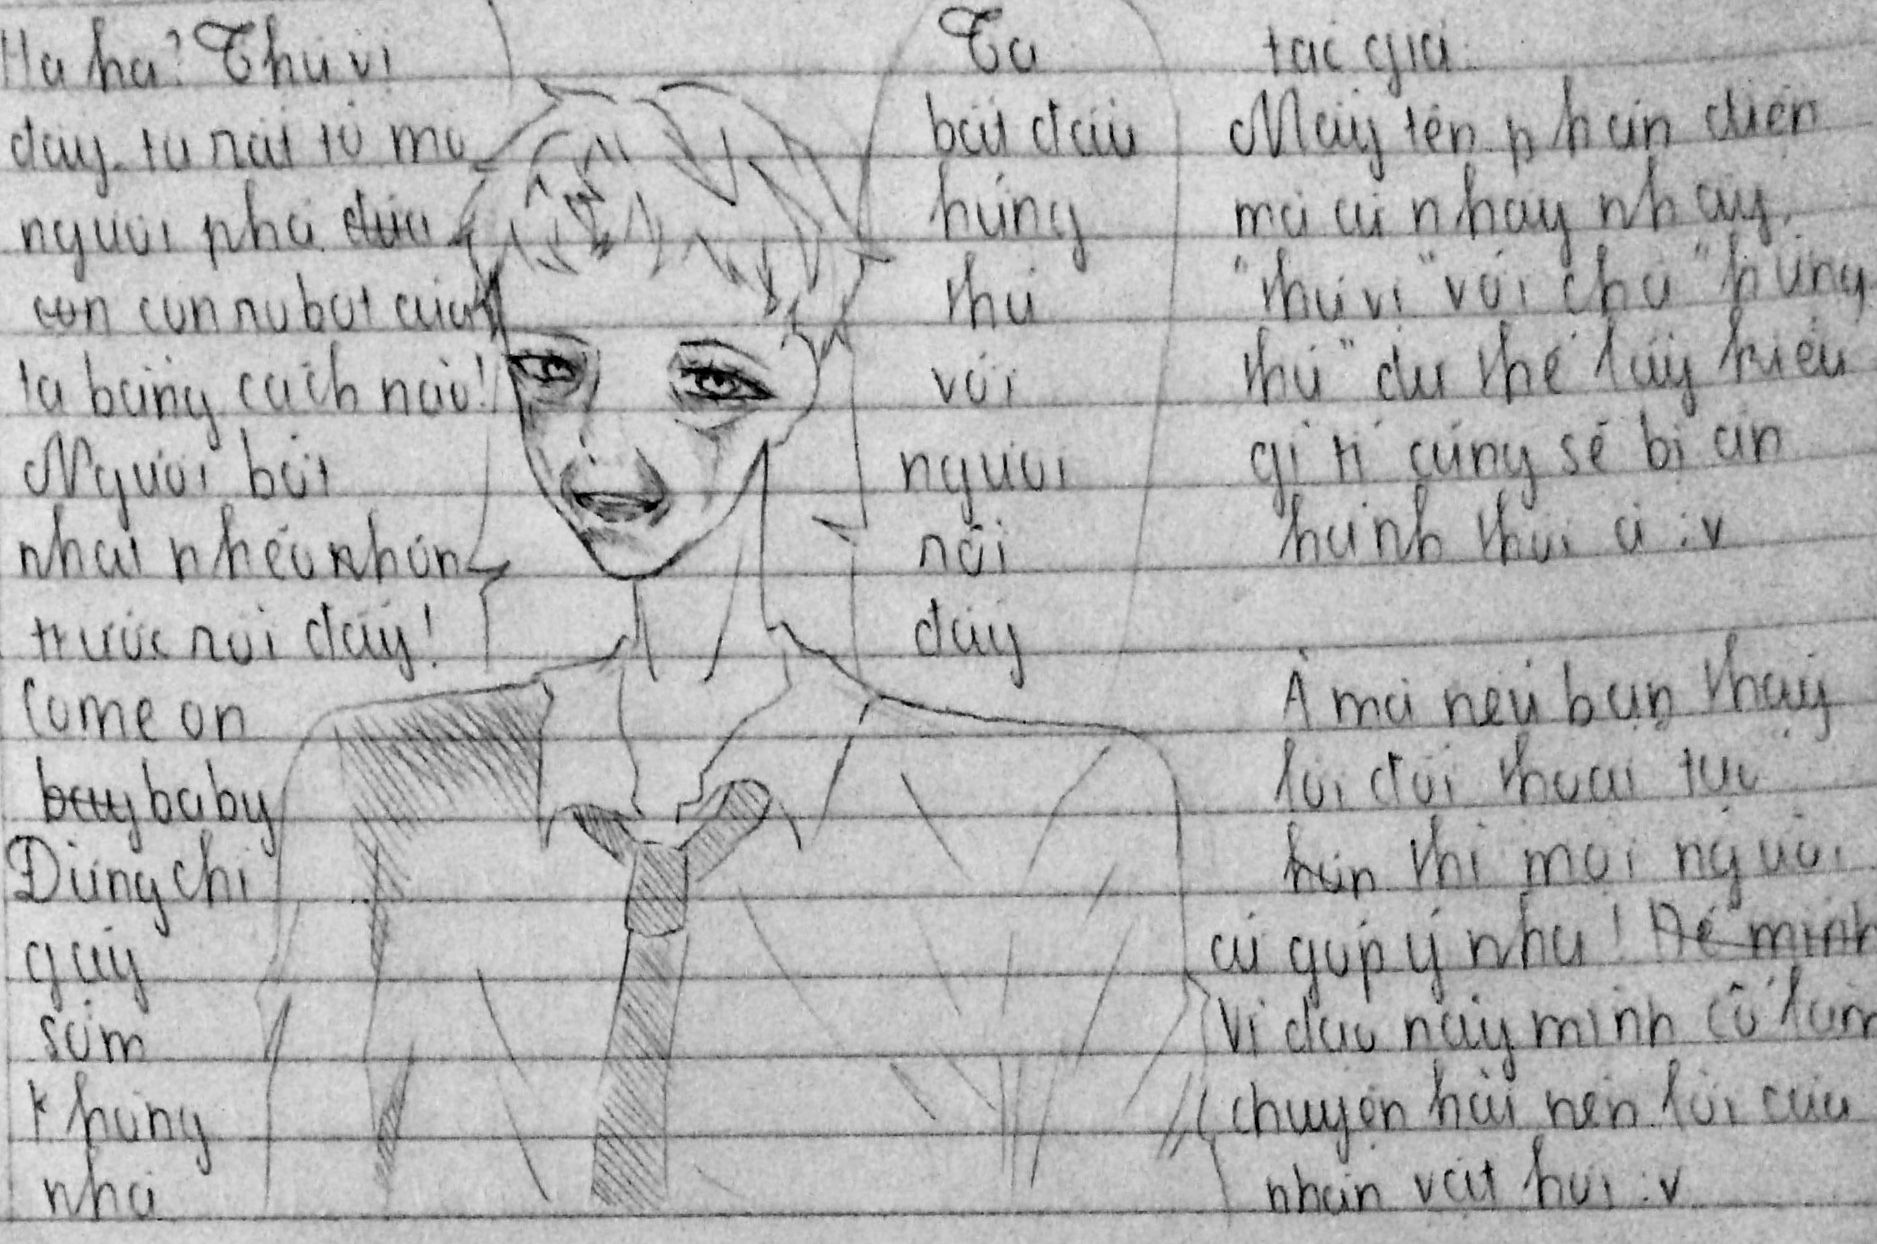 Ha ha? Thú vị
đây. ta rất tò mò
ngươi phá đứa
con con rubot của
ta bằng cách nào!
Ngươi bớt
nhạt nhẽo hơn
trước rồi đấy!
Come on
bay baby
Đừng chỉ
gáy
sớm
không
nhá
Ta
bắt đầu
hứng
thú
với
ngươi
rồi
đấy
tác giả:
Mấy tên phản diện
mà cứ nhay nhay
"thú vị" với chả "hứng
thú" dư thế lày kiểu
gì tí cũng sẽ bị ăn
hành thui à :v
À mà nếu bạn thấy
lời đối thoại tục
hơn thì mọi người
cứ góp ý nha! Để mình
Vì dạo này mình cố làm
chuyện hài nên lời của
nhân vật hơi :v